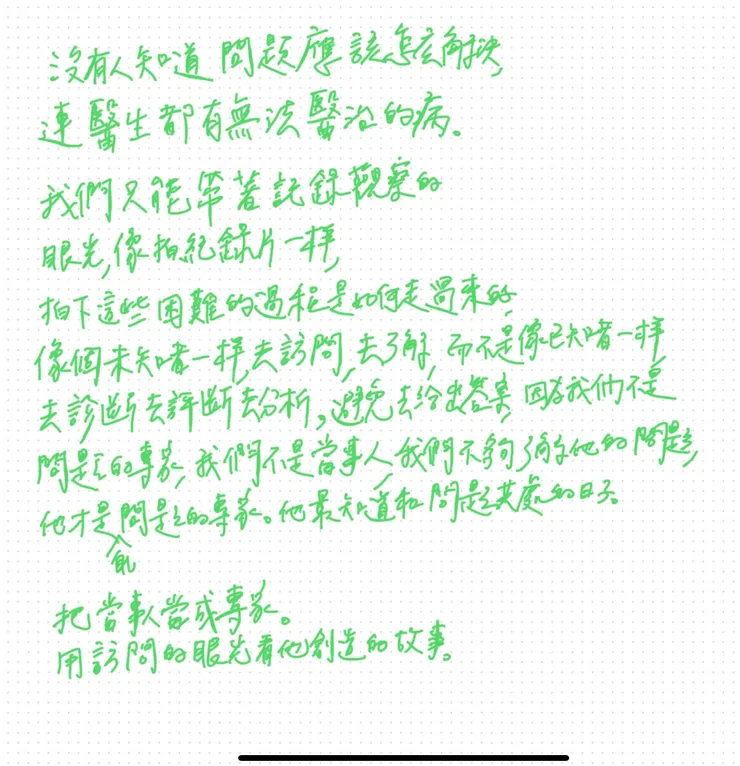 沒有人知道 問題應該怎麼解決,
連醫生都有無法醫治的病。
我們只能帶著記錄觀察的
眼光,像拍紀錄片一樣,
拍下這些困難的過程是如何走過來的
像個未知者一樣,去訪問,去了解,而不是像已知者一樣
去診斷去評斷去分析。避免去給出答案,因為我們不是
問題的專家,我們不是當事人,我們不夠了解他的問題,
他才是問題的專家。他最知道和問題共處的日子。
能
把當事人當成專家。
用訪問的眼光看他創造的故事。